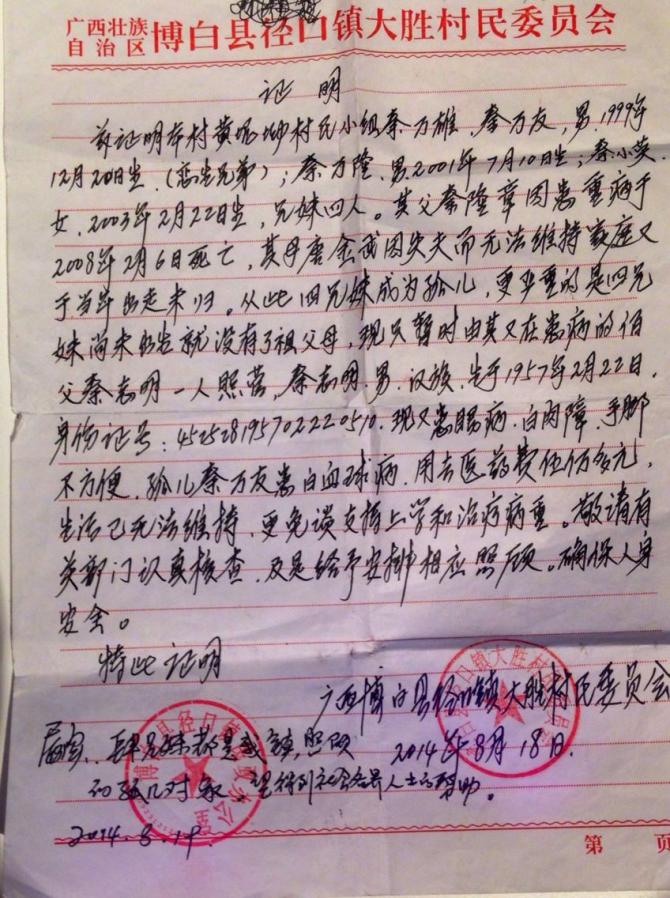 广西壮族自治区 博白县径口镇大胜村民委员会
证 明
兹证明本村黄坭坳村民小组秦万雄、秦万友,男,1999年
12月20日生,(恋生兄弟);秦万隆,男,2001年7月10日生;秦小英,
女,2003年2月22日生,兄妹四人。其父秦隆章因患重病于
2008年2月6日死亡,其母唐金 因失夫而无法维持家庭又
于当年出走未归。从此四兄妹成为孤儿,更严重的是四兄
妹尚未出生就没有了祖父母,现只暂时由其又在患病的伯
父秦志明一人照营,秦志明,男,汉族,生于1957年2月22日,
身份证号:452528195702220510.现又患肠病、白内障、手脚
不方便,孤儿秦万友患白血球病,用去医药费伍仟多元,
生活已无法维持,更免谈支持上学和治疗病重。敬请有
关部门认真核查,及是给予安排相应照顾。确保人身
安全。
特此证明
广西博白县径口镇大胜村民委员会
2014年8月18日.
属实,肆兄妹都是我镇照顾
的孤儿对象,望得到社会各界人士的帮助。
2014.8.19
第 页